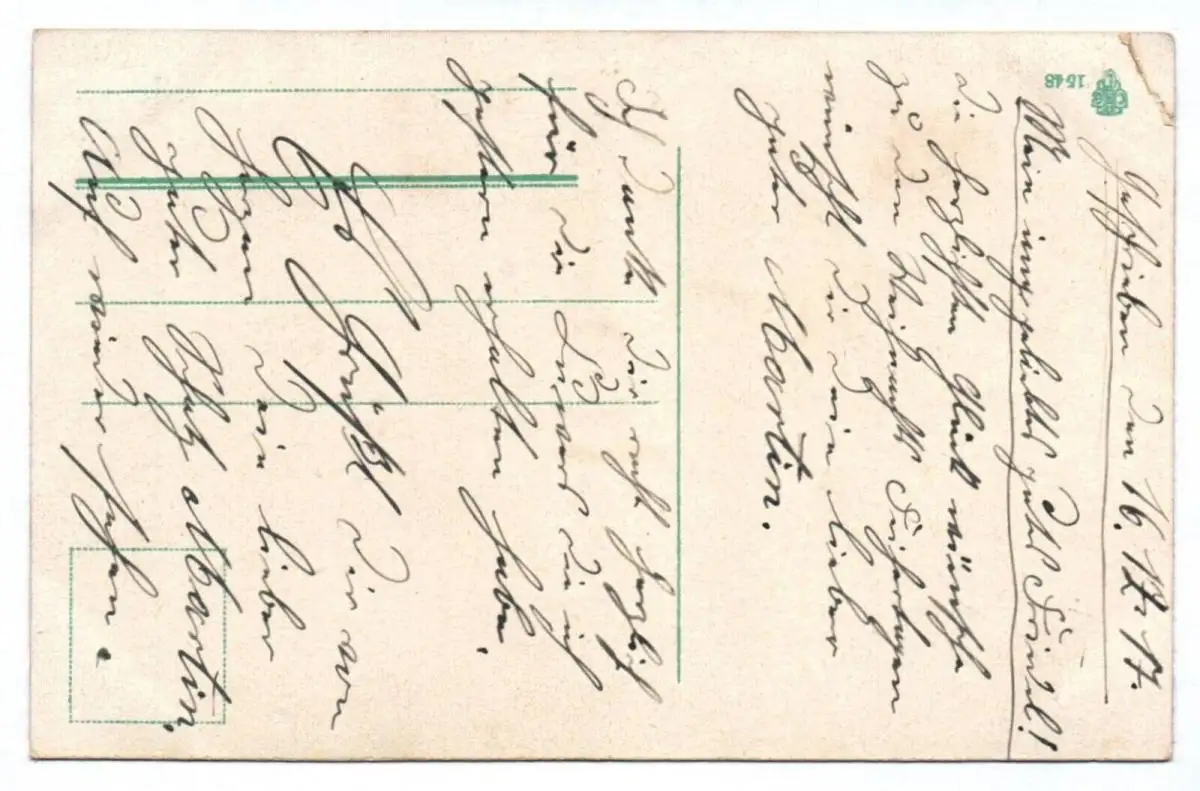 1548
Geschrieben den 16. 12. 17.
Mein inniggeliebtes gutes
Die herzlichsten Glück wünsche
zu den Weihnachts Feiertagen
wünscht Dir Dein lieber
guter Martin.
Ich danke Dir recht herzlich
für die die ich
gestern erhalten habe.
Es Grüßt Dir von
Herzen Dein lieber
guter Schatz Martin.
Auf wieder sehen.